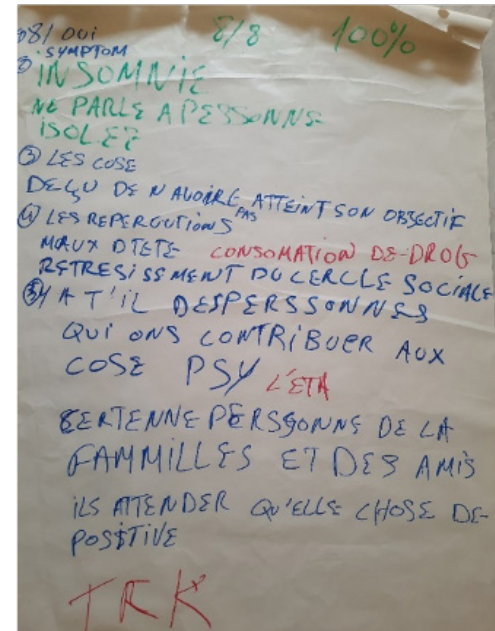 08/ OUI 8/8 100%
SYMPTOM
② INSOMNIE
NE PARLE A PERSONNE
ISOLEZ
③ LES COSE
DEÇU DE N AVOIRE PAS ATTEINT SON OBJECTIF
④ LES REPERCUTIONS
MAUX DTETE CONSOMATION DE-DROG
RETRESISSMENT DU CERCLE SOCIALE
⑤ Y A T'IL DESPERSSONNES
QUI ONS CONTRIBUER AUX
COSE PSY L'ETA
CERTENNE PERSSONNE DE LA
FAMMILLES ET DES AMIS
ILS ATTENDER QU'ELLE CHOSE DE-
POSITIVE
TRK